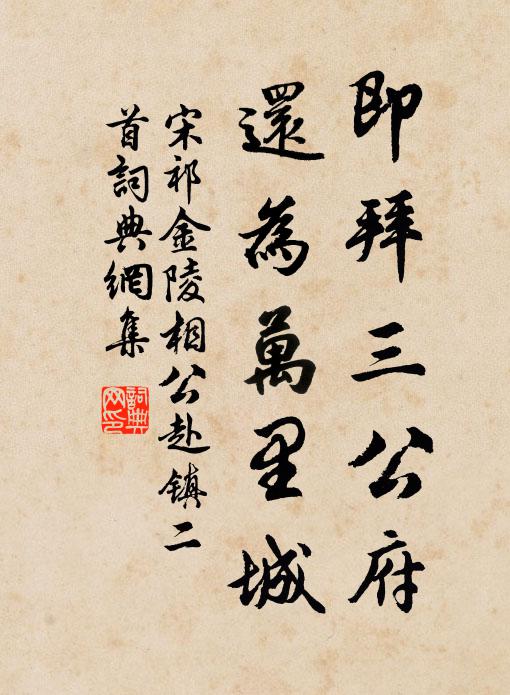 即拜三公府
還為萬里城
宋祁金陵相公赴鎮二
首詞典網集
詞典
网印